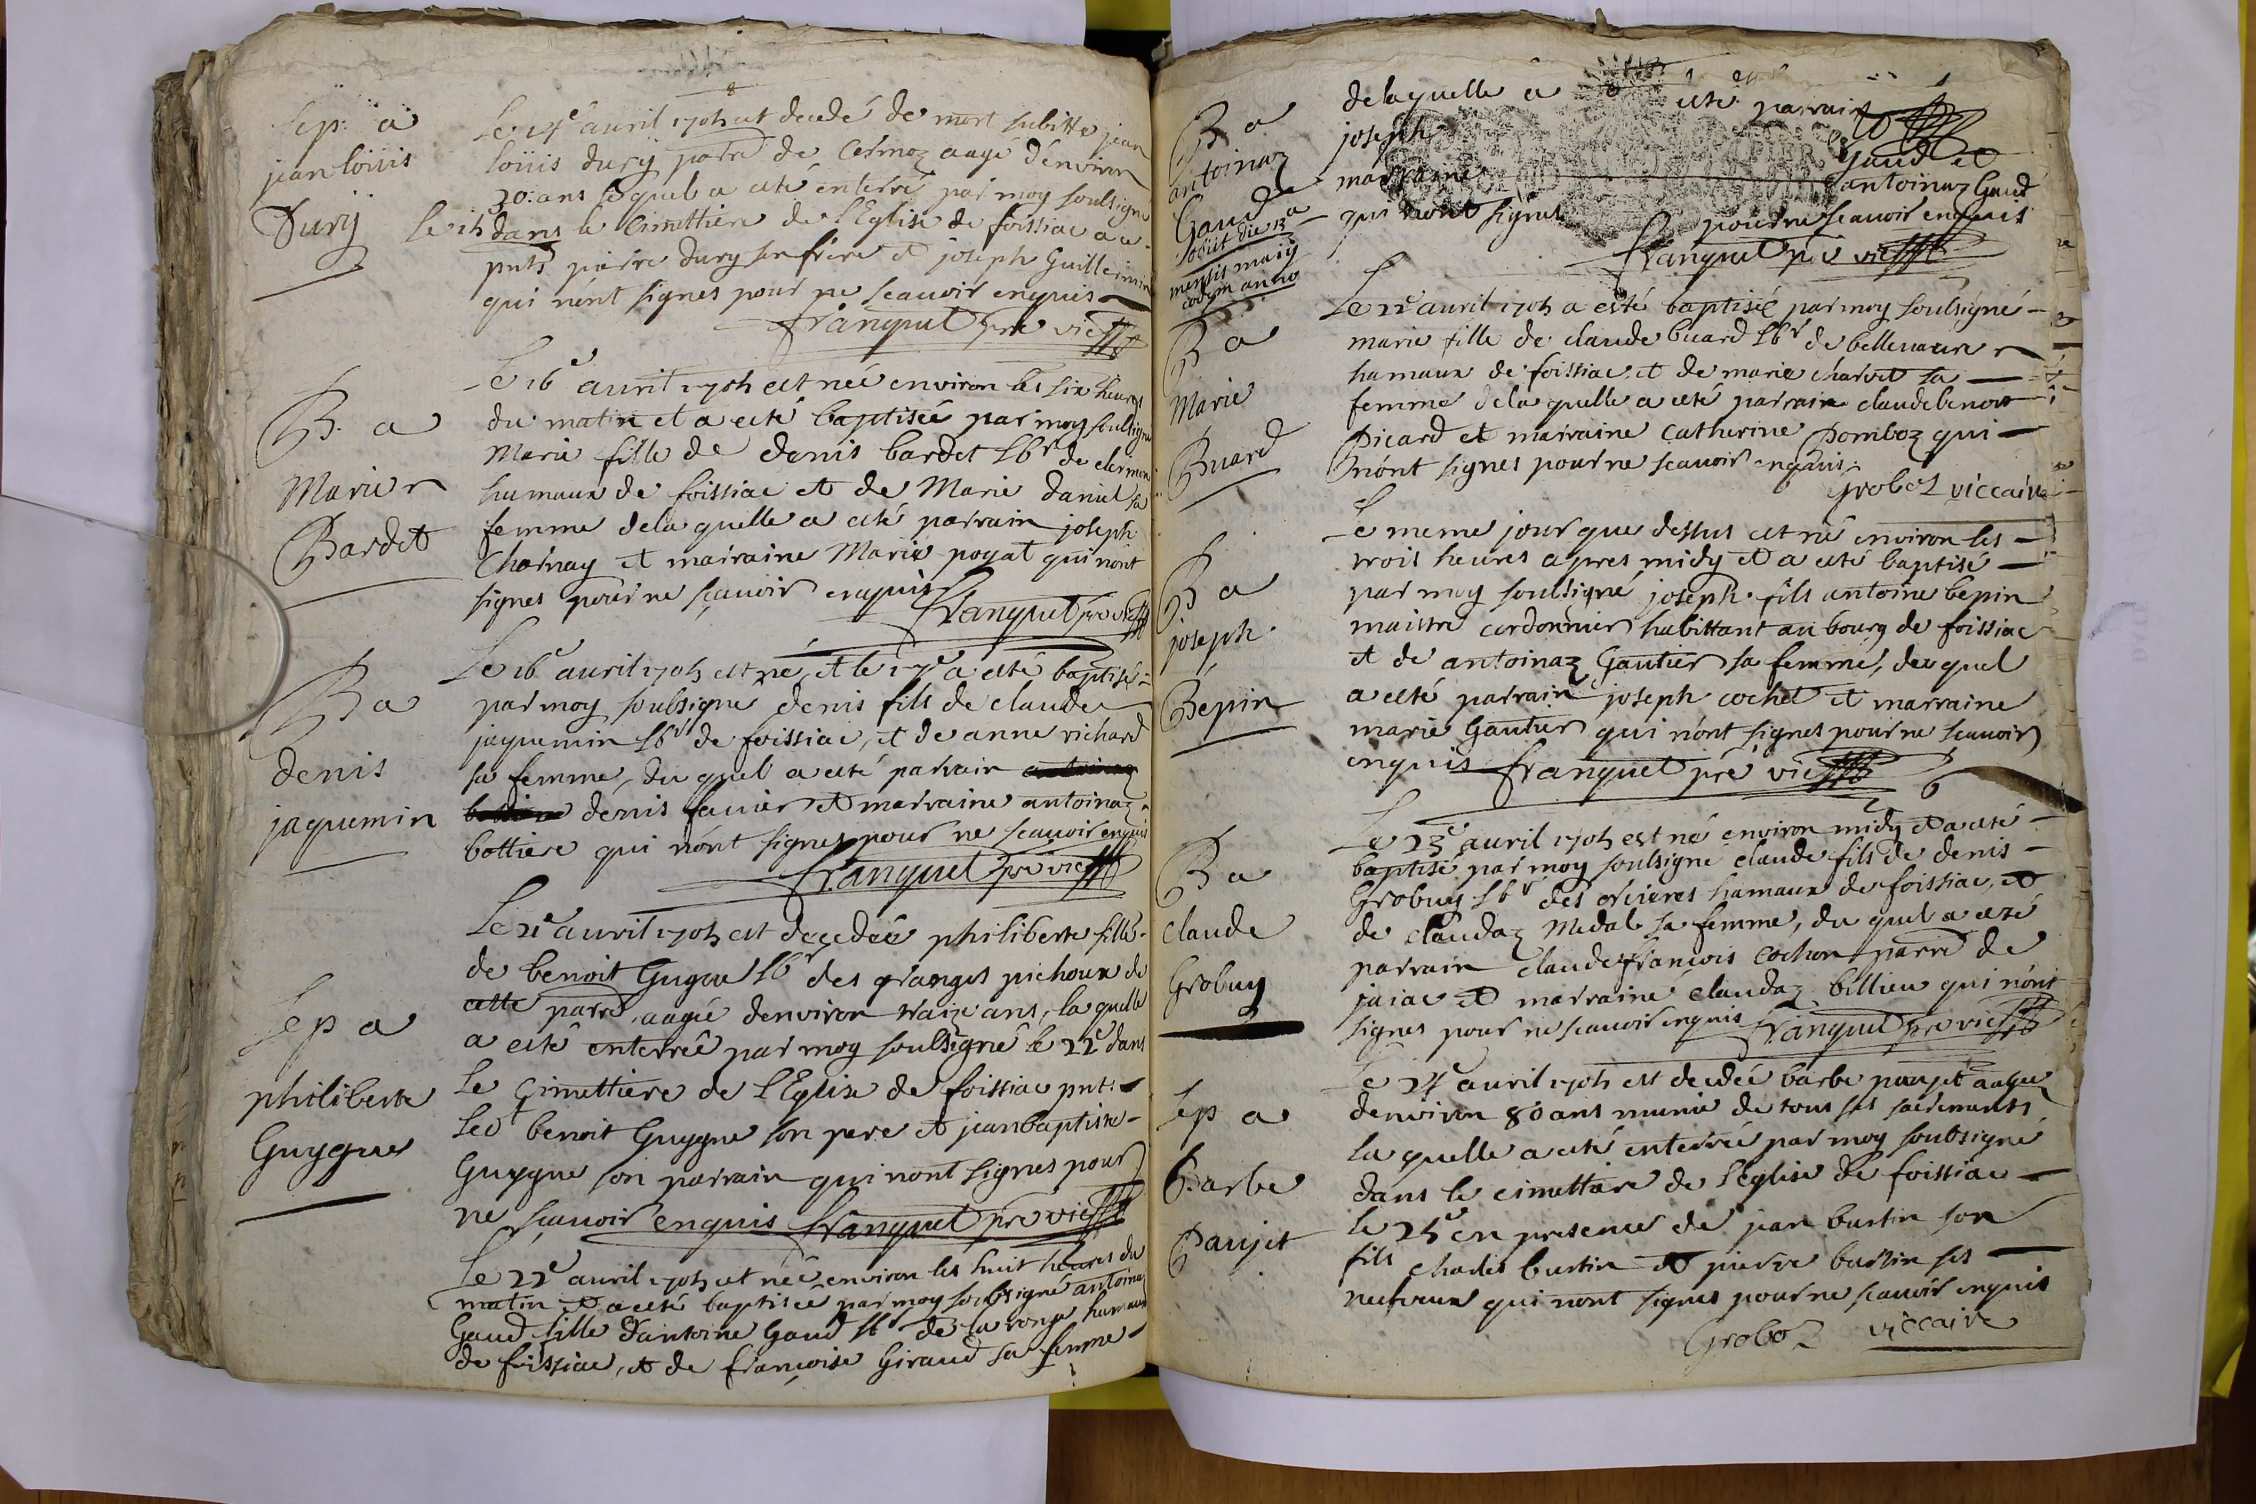 Sep. a
jean loüis
Dury
Le 14e avril 1705 est decedé de mort subitte jean
loüis dury parre de Cormoz aagé d'environ
30: ans lequel a esté enterré par moy soubsigné
le 15e dans le Cimettiere de l'Eglise de foissiac a ce
pnts pierre dury son frere et joseph Guillermin
qui n'ont signes pour ne scauoir enquis
franquet pre vic
B. a
Marie
Bardet
Le 16e auril 1705 est née environ les six heures
du matin et a esté baptisée par moy soubsigne
Marie fille de denis bardet lbr de clermon
hamaux de foissiac et de Marie daniel sa
femme de la quelle a esté parrain joseph
Charnay et mairaine Marie poyat qui n'ont
signes pour ne sçauoir enquis
franquet pre vic
B a
denis
jaquemin
Le 16e auril 1705 est né, et le 17e a esté baptisé
par moy soubsigne denis fils de claude
jaquemin lbr de foissiac, et de anne richard
sa femme, du quel a esté parrain
denis fauier et marraine antoinaz
bottiere qui n'ont signes pour ne scauoir enquis
franquet pre vic
Sep a
philiberte
Guygue
Le 21e auril 1705 est decedée philiberte fille
de benoit Gugue lbr des granges pichoux de
cette parre, aagée denviron traize ans, la quelle
a esté enterrée par moy soulsigné le 22e dans
le Cimettiere de l'Eglise de foissiac pnt:
led benoit Guygue son pere et jean baptiste
Guygue son parrain qui nont signes pour
ne sçauoir enquis franquet pre vic
Le 22e auril 1705 est née environ les huit heures du
matin et a esté baptisée par moy soubsigné antoina
Gaud fille d'antoine Gaud lbr de la ronge hamaux
de foissiac, et de françoise Giraud sa femme
B a
antoinaz
Gaud
obiit die 13a
mensis maij
eodem anno
de la quelle a esté parrain
joseph Gaud et
marraine antoinaz Gaud
qui n'ont signes pour ne scauoir enquis
franquet pre vic
B a
Marie
Buard
Le 22e auril 1705 a esté baptisée par moy soulsigné
marie fille de claude buard lbr de bellevaure
hamaux de foissiac et de marie charvet sa
femme de la quelle a esté parrain claude benoit
Picard et marraine Catherine Pomboz qui
n'ont signes pour ne scauoir enquis
Groboz viccaire
B a
joseph
Bepin
Le meme jour que dessus est né environ les
trois heures apres midy et a esté baptisé
par moy soulsigné joseph fils antoine bepin
maistre cordonnier habittant au bourg de foissiac
et de antoinaz Gautier sa femme, du quel
a esté parrain joseph cochet et marraine
marie Gautier qui n'ont signes pour ne scauoir
enquis franquet pre vic
B a
claude
Grobuy
Le 23e auril 1705 est né environ midy et a esté
baptisé par moy soulsigne claude fils de denis
Grobuy lbr des orcieres hamaux de foissiac, et
de claudaz Medal sa femme, du quel a esté
parrain claude françois Cochon parre de
jaiac et marraine claudaz billieu qui n'ont
signes pour ne scauoir enquis franquet pre vic
Sep a
Barbe
Paujet
Le 24e auril 1705 est decedée barbe paujet aagée
denviron 80 ans munie de tous ses sacrements
la quelle a esté enterrée par moy soubsigné
dans le cimettiere de l'Eglise de foissiac
le 25e en presence de jean burtin son
fils charles burtin et pierre burtin ses
nepueux qui nont signes pour ne scauoir enquis
Groboz viccaire